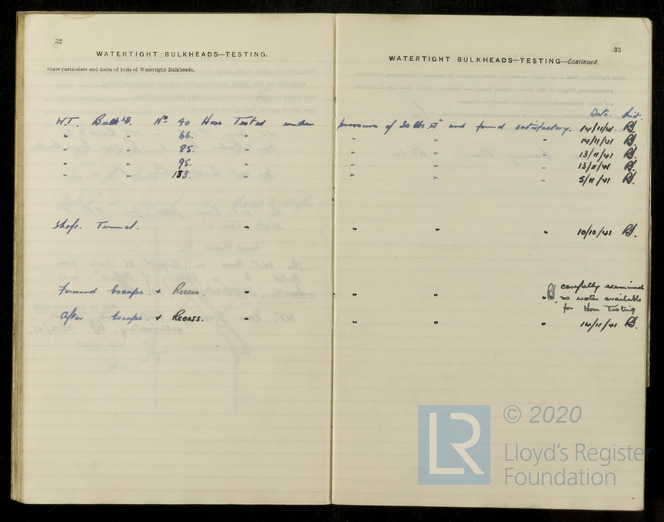 32
WATERTIGHT BULKHEADS—TESTING.
State particulars and dates of tests of Watertight Bulkheads.
33
WATERTIGHT BULKHEADS—TESTING—Continued.
Date Init.
W.T. Bulkhd. No 90 Hose Tested under pressure of 30 lbs □" and found satisfactory. 14/11/41
" " 66. " " " " 14/11/41
" " 85. " " " " 13/11/41
" " 95. " " " " 13/11/41
" " 133. " " " " 5/11/41
Shaft Tunnel. " " " " 10/10/41
Forward Escape & Recess. " " " " carefully examined
no water available
for Hose Testing
After Escape & Recess. " " " " 14/11/41
LR © 2020
Lloyd's Register
Foundation